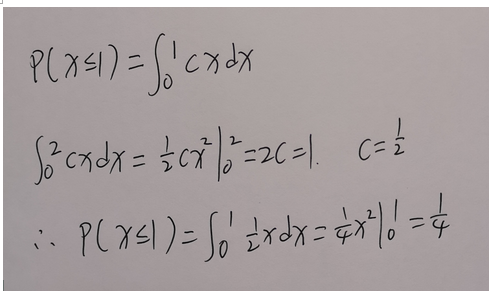 P(X≤1)=∫₀¹cxdx
∫₀²cxdx=½cx²|₀²=2c=1. c=½
∴ P(X≤1)=∫₀¹½xdx=¼x²|₀¹=¼